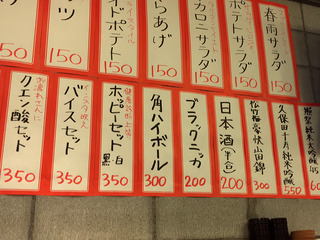 春雨サラダ
150
ポテトサラダ
150
マカロニサラダ
150
らあげ
150
イドポテト
150
ツ
150
久保田千寿純米吟醸
550
松竹梅豪快山田錦
300
日本酒(半合)
200
ブラックニッカ
200
角ハイボール
300
ホッピーセット
黒・白
350
バイスセット
350
クエン酸セット
350